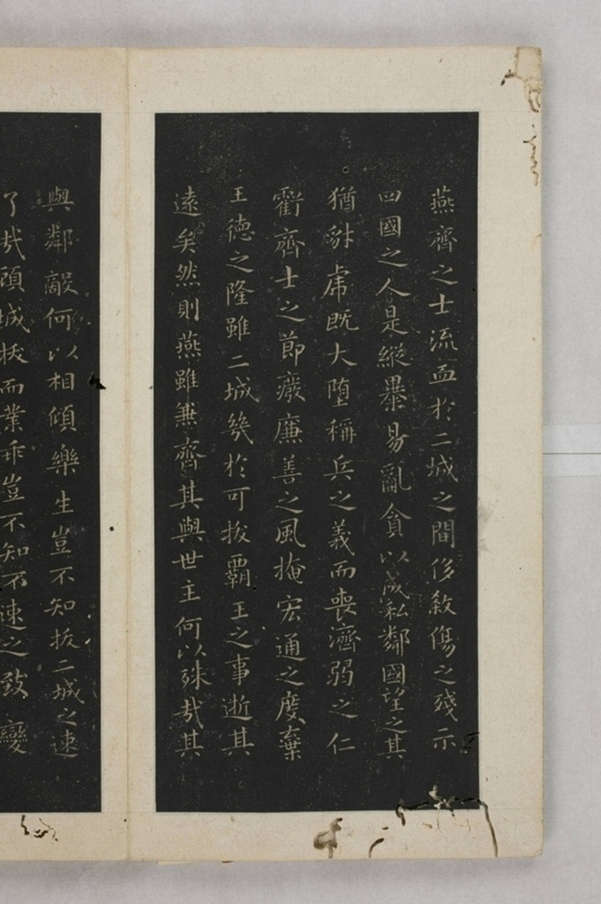 燕齊之士流血於二城之間侈殺傷之殘示
四國之人是縱暴易亂貪以成私鄰國望之其
猶豺虎既大墮稱兵之義而喪濟弱之仁
虧齊士之節廢廉善之風掩宏通之度棄
王德之隆雖二城幾於可拔霸王之事逝其
遠矣然則燕雖兼齊其與世主何以殊哉其
與鄰敵何以相傾樂生豈不知拔二城之速
了哉顧城拔而業乖豈不知不速之致變